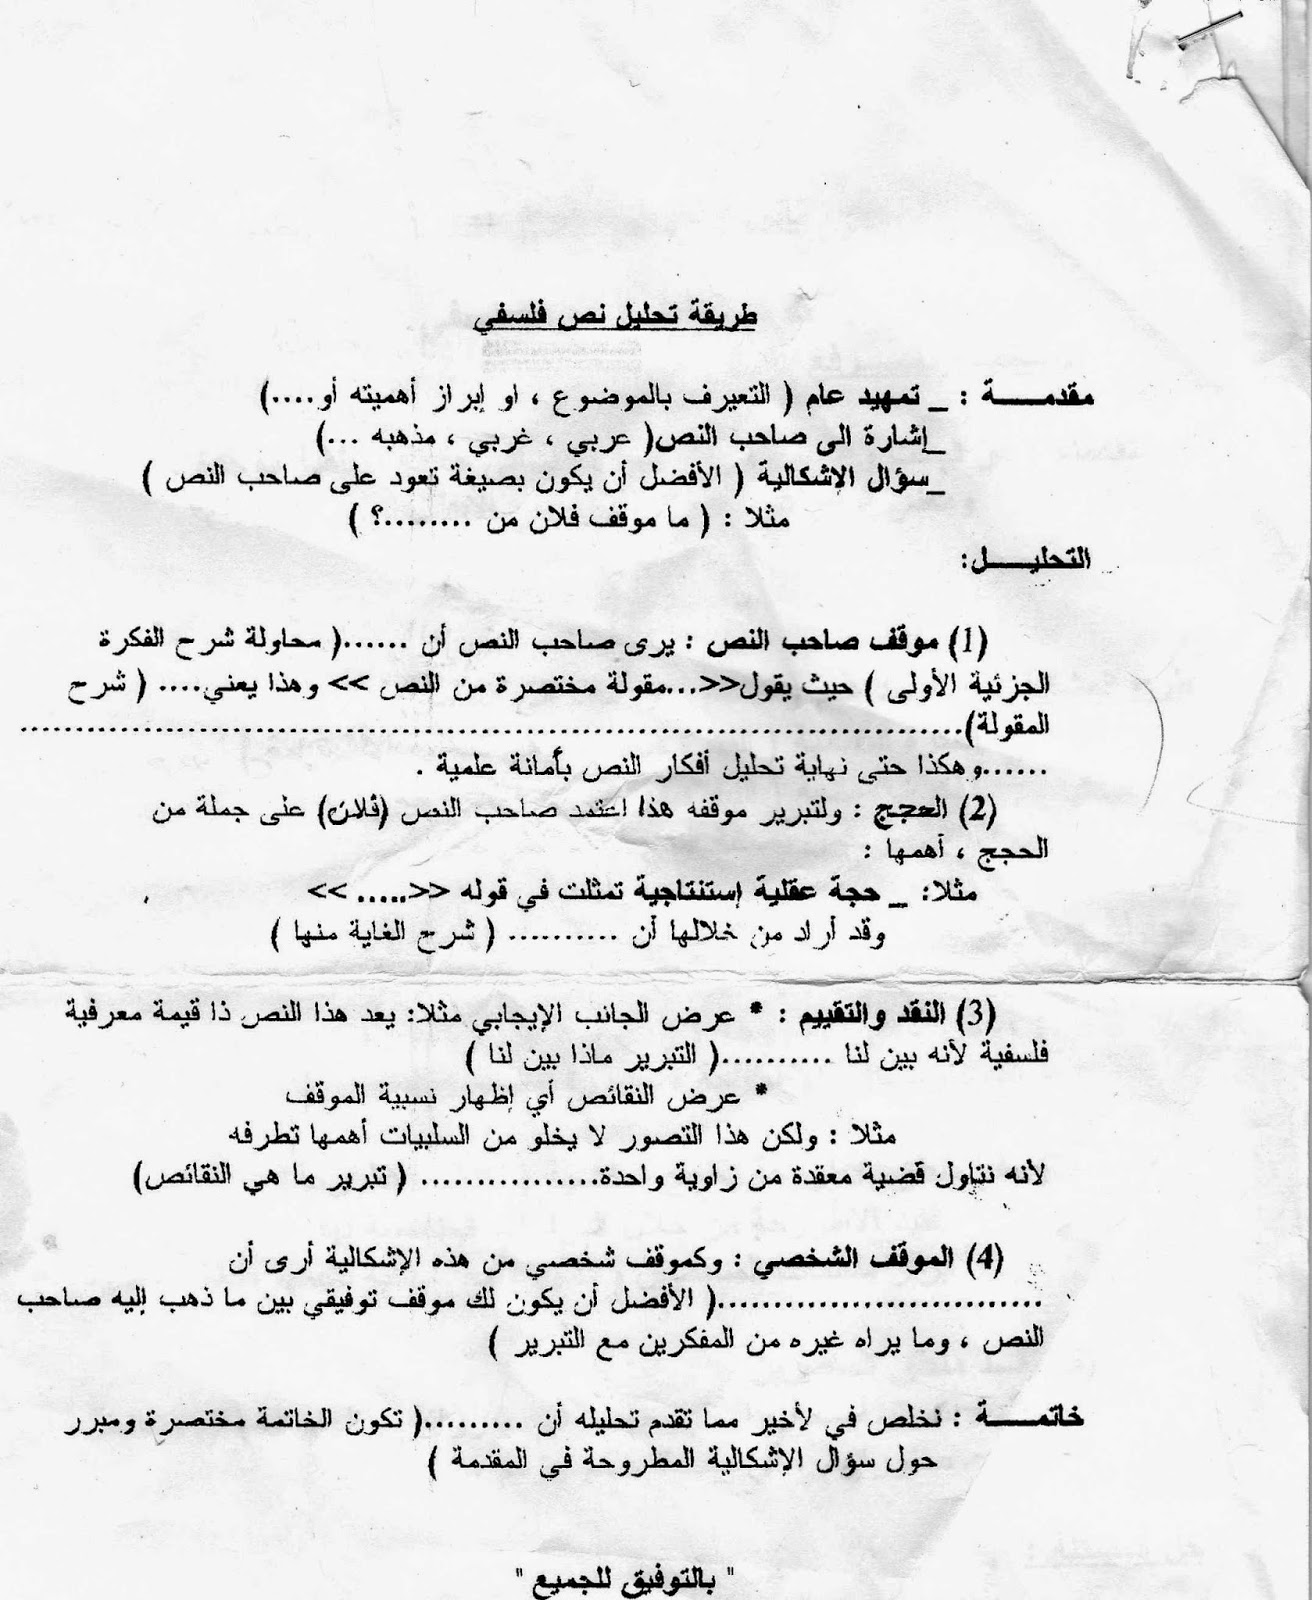 طريقة تحليل نص فلسفي
مقدمـــــة : _ تمهيد عام ( التعيرف بالموضوع ، او إبراز أهميته أو....)
_إشارة الى صاحب النص( عربي ، غربي ، مذهبه ...)
_سؤال الإشكالية ( الأفضل أن يكون بصيغة تعود على صاحب النص )
مثلا : ( ما موقف فلان من ........؟ )
التحليـــــل:
(1) موقف صاحب النص : يرى صاحب النص أن ......( محاولة شرح الفكرة
الجزئية الأولى ) حيث يقول<<...مقولة مختصرة من النص >> وهذا يعني.... ( شرح
المقولة)...............................................................................
......وهكذا حتى نهاية تحليل أفكار النص بأمانة علمية .
(2) الحجج : ولتبرير موقفه هذا اعتمد صاحب النص (فلان) على جملة من
الحجج ، أهمها :
مثلا: _ حجة عقلية إستنتاجية تمثلت في قوله <<..... >>
وقد أراد من خلالها أن .......... ( شرح الغاية منها )
(3) النقد والتقييم : * عرض الجانب الإيجابي مثلا: يعد هذا النص ذا قيمة معرفية
فلسفية لأنه بين لنا ..........( التبرير ماذا بين لنا )
* عرض النقائص أي إظهار نسبية الموقف
مثلا : ولكن هذا التصور لا يخلو من السلبيات أهمها تطرفه
لأنه نتاول قضية معقدة من زاوية واحدة................ ( تبرير ما هي النقائص)
(4) الموقف الشخصي : وكموقف شخصي من هذه الإشكالية أرى أن
.............................( الأفضل أن يكون لك موقف توفيقي بين ما ذهب إليه صاحب
النص ، وما يراه غيره من المفكرين مع التبرير )
خاتمـــــة : نخلص في لأخير مما تقدم تحليله أن .........( تكون الخاتمة مختصرة ومبرر
حول سؤال الإشكالية المطروحة في المقدمة )
" بالتوفيق للجميع "